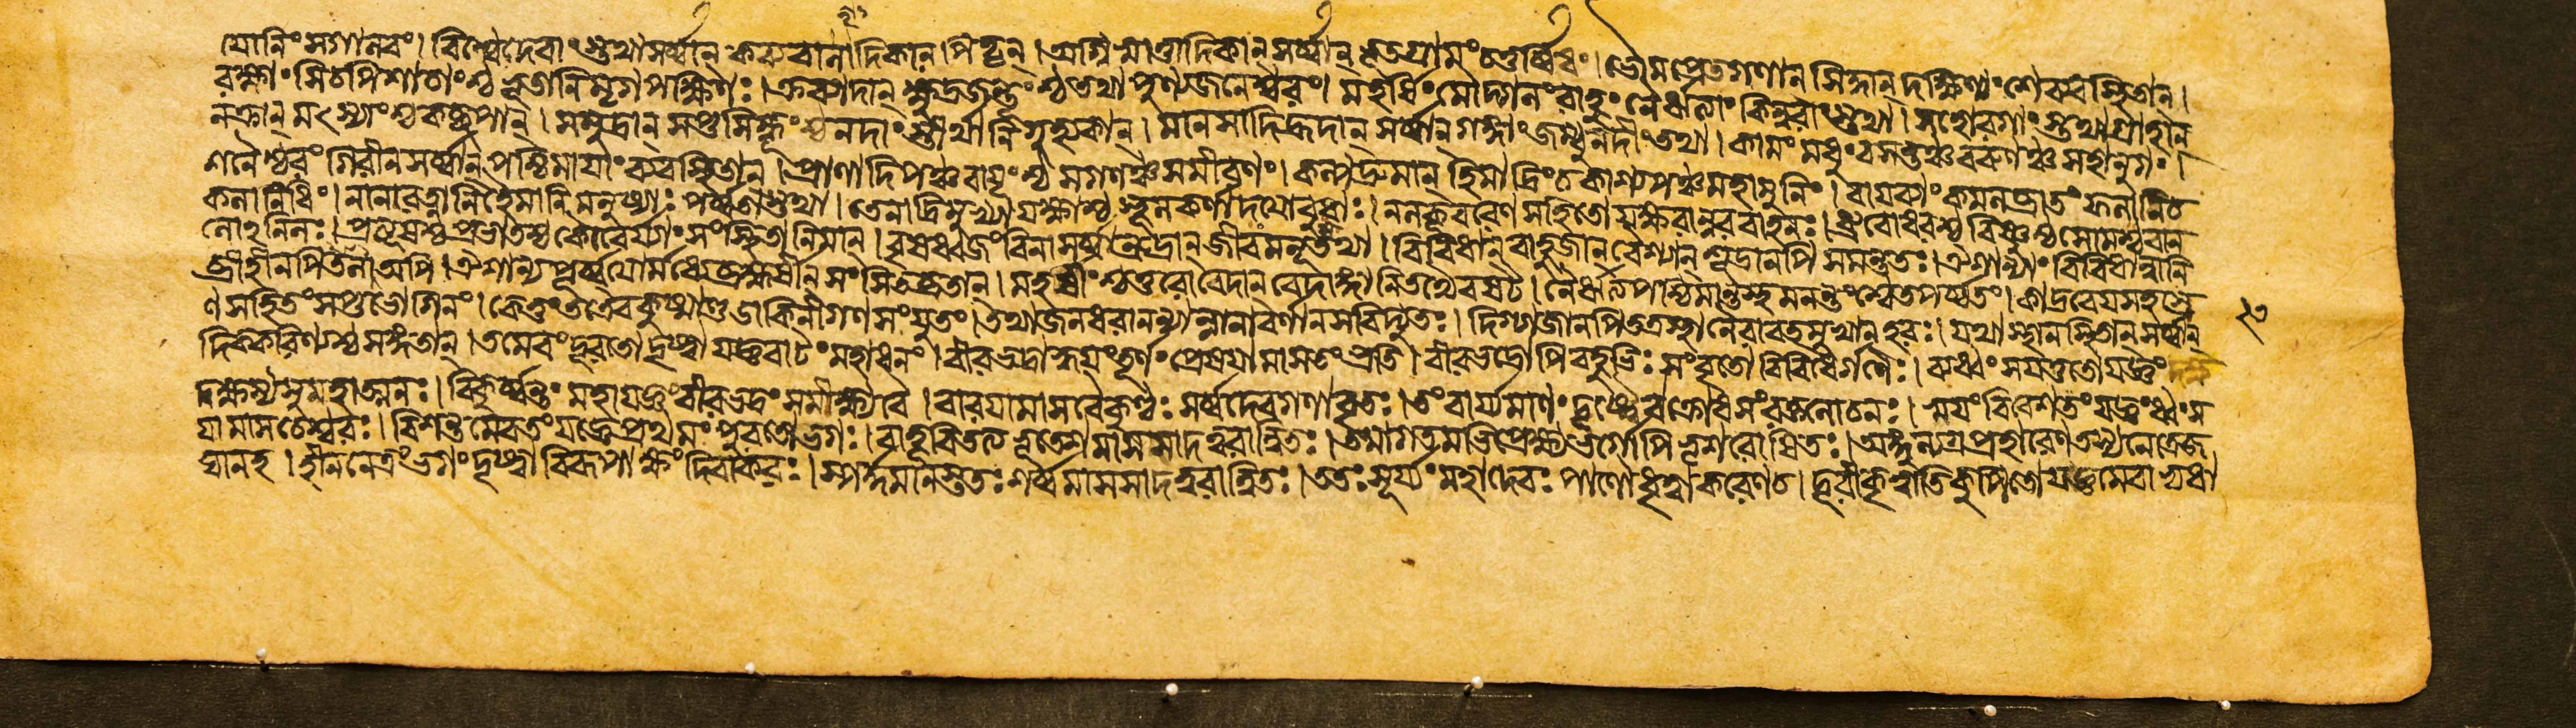 যোনিং সগানবং। বিশ্বেদেবাংস্তথাসর্ব্বান্ কব্যবালাদিকান্ পিতৄন্। অগ্নিষ্বাত্তাদিকান্ সর্ব্বান্ ভূতগ্রামং চতুর্ব্বিধং। ভৌমপ্রেতগণান্ সিদ্ধান্ দক্ষিণাং শেব্যবস্থিতান্।
রক্ষাংসিচপিশাচাংশ্চ ভূতানিমৃগপক্ষিণঃ। ক্রব্যাদান্ ক্ষুদ্রজন্তুংশ্চ তথা পুণ্যজনেশ্বরং। মহর্ষিং মৌদ্গলং রাহুং নৈর্ঋত্যাং কিন্নরাংস্তথা। মহোরগাংস্তথাগ্রাহান্
নক্রান্ মৎস্যাংশ্চ কচ্ছপান্। সমুদ্রান্ সপ্তসিন্ধূংশ্চ নদাংস্তীর্থানিগুহ্যকান্। মানসাদিহ্রদান্ সর্ব্বান্ গঙ্গাং জম্বুনদীং তথা। কামং মধুং বসন্তঞ্চ বরুণঞ্চ সহানুগং।
শনৈশ্চরং গিরীন্ সর্ব্বান্ পশ্চিমায়াং ব্যবস্থিতান্। প্রাণাদিপঞ্চবায়ুংশ্চ সগণঞ্চ সমীরণং। কল্পদ্রুমান্ হিমাদ্রিং চ কাশ্যপঞ্চ মহামুনিং। বায়ব্যাং কমলজাতং ফলানিচ
কলানিধিং। নানারত্নানিহেমানি মনুষ্যাঃ পর্ব্বতাস্তথা। হেমাদ্রিমুখ্যাযক্ষাশ্চ স্থূলকর্ণাদয়োবুধাঃ। নলকূবরেণ সহিতো যক্ষরাট্নরবাহনঃ। ধ্রুবোধরশ্চ বিষ্ণুশ্চ সোমশ্চৈবান
লোঽনিলঃ। প্রত্যূষশ্চ প্রভাতশ্চ কৌবের্য্যাং সংস্থিতানিমান্। বৃষধ্বজং বিনাসর্ব্বান্ রুদ্রান্ জীবংমনূংস্তথা। বিবিধান্ বাহুজান্ বৈশ্যান্ শূদ্রানপি সমন্ততঃ। ঐশান্যাং বিবিধান্নানি
ব্রীহীনপি তিলা অপি। ঐশান্য পূর্ব্বয়োর্মধ্যে ব্রহ্মর্ষীন্ সংসিতব্রতান্। মহর্ষীংশ্চ চতুরোবেদান্ বেদাঙ্গানি তথৈবষট্। নৈর্ঋতপশ্চিমান্তস্থমনন্তং শ্বেতপর্ব্বতং। কাদ্রবেয়সহস্রে
ণ সহিতং সপ্তভোগিনং। কেতুং তত্রৈব কুষ্মাণ্ডডাকিনীগণসংযুতং। তথাজলধরানন্যান্নানাবর্ণান্ সবিদ্যুতঃ। দিগ্গজানপি তত্রস্থানৈরাবতমুখান্ হরঃ। যথাস্থানস্থিতান্ সর্ব্বান্ ২৩
দিক্করিণ্যশ্চ সঙ্গতান্। তমেবং দূরতো দৃষ্ট্বা যজ্ঞবাটং মহাধনং। বীরভদ্রাহ্বয়ং তূর্ণং প্রেষয়ামাসতং প্রতি। বীরভদ্রোপি বহুভিঃ সংবৃতো বিবিধৈর্গণৈঃ। বভঞ্জ সযত্নতো যজ্ঞং
দক্ষস্য সুমহাত্মনঃ। বিকুর্ব্বন্তং মহাযজ্ঞং বীরভদ্রং সমীক্ষ্যবৈ। বারয়ামাসবৈকুণ্ঠঃ সর্ব্বদেবগণাবৃতঃ। তং বার্য্যমাণং দৃষ্ট্বৈব ক্রোধসংরক্তলোচনঃ। স্বয়ং বিবেশতং যজ্ঞং ধ্বংস
য়ামাস চেশ্বরঃ। বিশন্তমেবতং যজ্ঞে প্রথমং পুরতোভগঃ। বাহূবিতত্য ভূতেশমাসসাদ ত্বরান্বিতঃ। তমাগতমভিপ্রেক্ষ্য ভর্গোপি ভৃশরোষিতঃ। অঙ্গুল্যগ্রপ্রহারেণ তস্য নেত্রে জ
ঘানহ। হীননেত্রং ভগং দৃষ্ট্বা বিরূপাক্ষং দিবাকরঃ। স্পর্দ্ধমানস্ততঃ শর্ব্বমাসসাদ ত্বরান্বিতঃ। ততঃ সূর্য্যং মহাদেবঃ পাণৌধৃত্বা করেণচ। দূরীকৃত্যাতিকুপিতো যজ্ঞমেবান্বধা